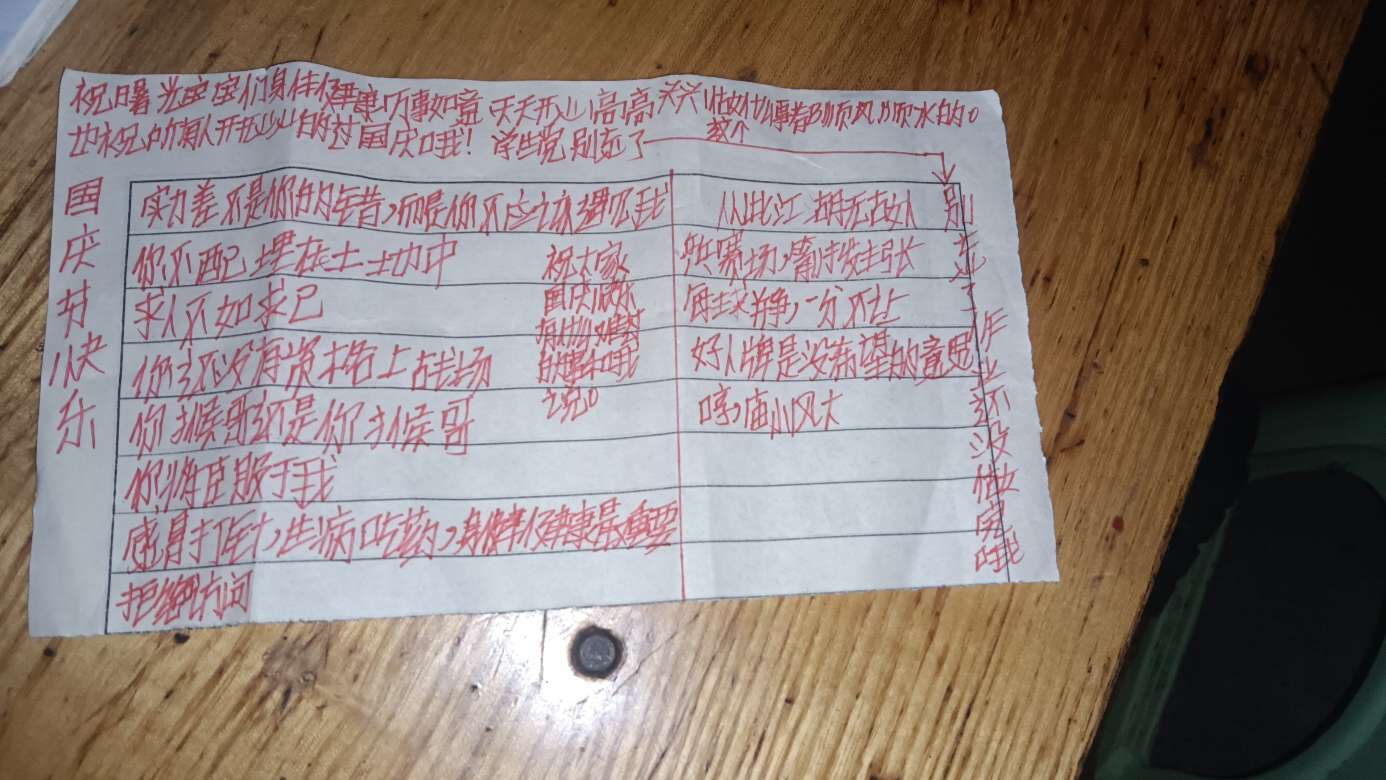 祝曙光宝宝们身体健康万事如意天天开心高高兴兴做什么事都顺风顺水的。
也祝你们真人开开心心的过国庆哦！学生党别忘了
这个
国庆节快乐
实力差不是你的错，而是你不应该遇见我
你不配埋在土地中
求人不如求己
你还没有资格上战场
你猴哥还是你猴哥
你将臣服于我
感冒打针，生病吃药，身体健康最重要
拒绝访问
祝大家
国庆快乐
有什么难听
的事和我
说。
从此江湖无故人
好人牌是没有赢的意思
哼，庙小风大
别忘了作业还没做完哦